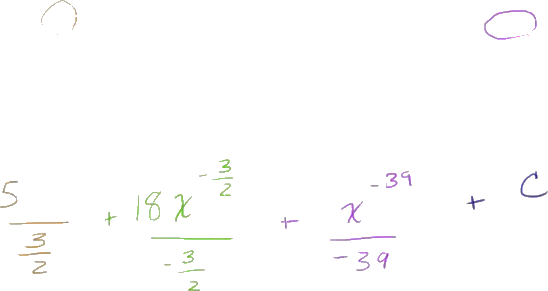 \frac{5}{\frac{3}{2}} + \frac{18x^{-\frac{3}{2}}}{-\frac{3}{2}} + \frac{x^{-39}}{-39} + C